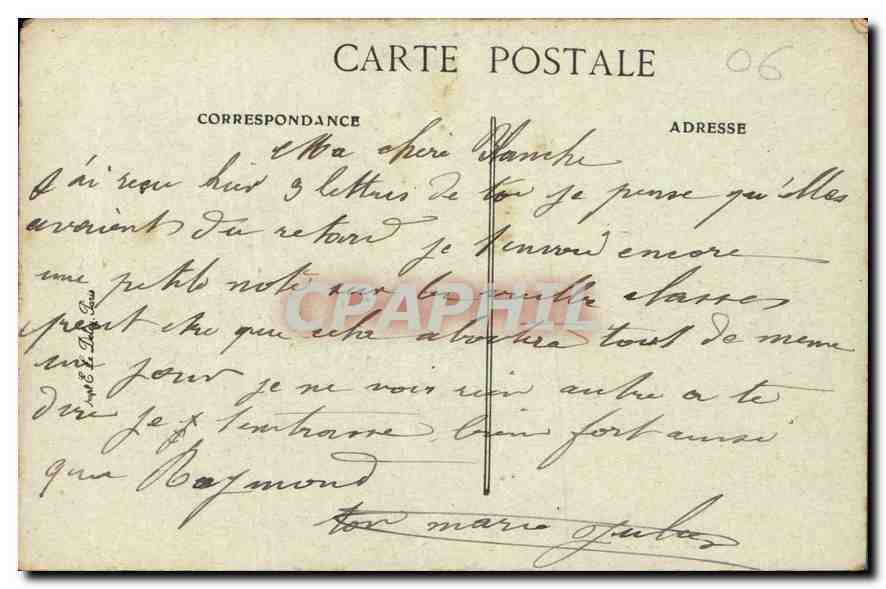 CARTE POSTALE
06
CORRESPONDANCE
ADRESSE
Ma chère Blanche
J'ai reçu hier 3 lettres de toi je pense qu'elles
avaient du retard je t'envoie encore
une petite note sur les vieilles classes
peut etre que cela aboutira tout de meme
un jour je ne vois rien autre a te
dire je t'embrasse bien fort ainsi
que Raymond
ton mari Jules
Impt E. Le Deley, Paris
CPAPHIL